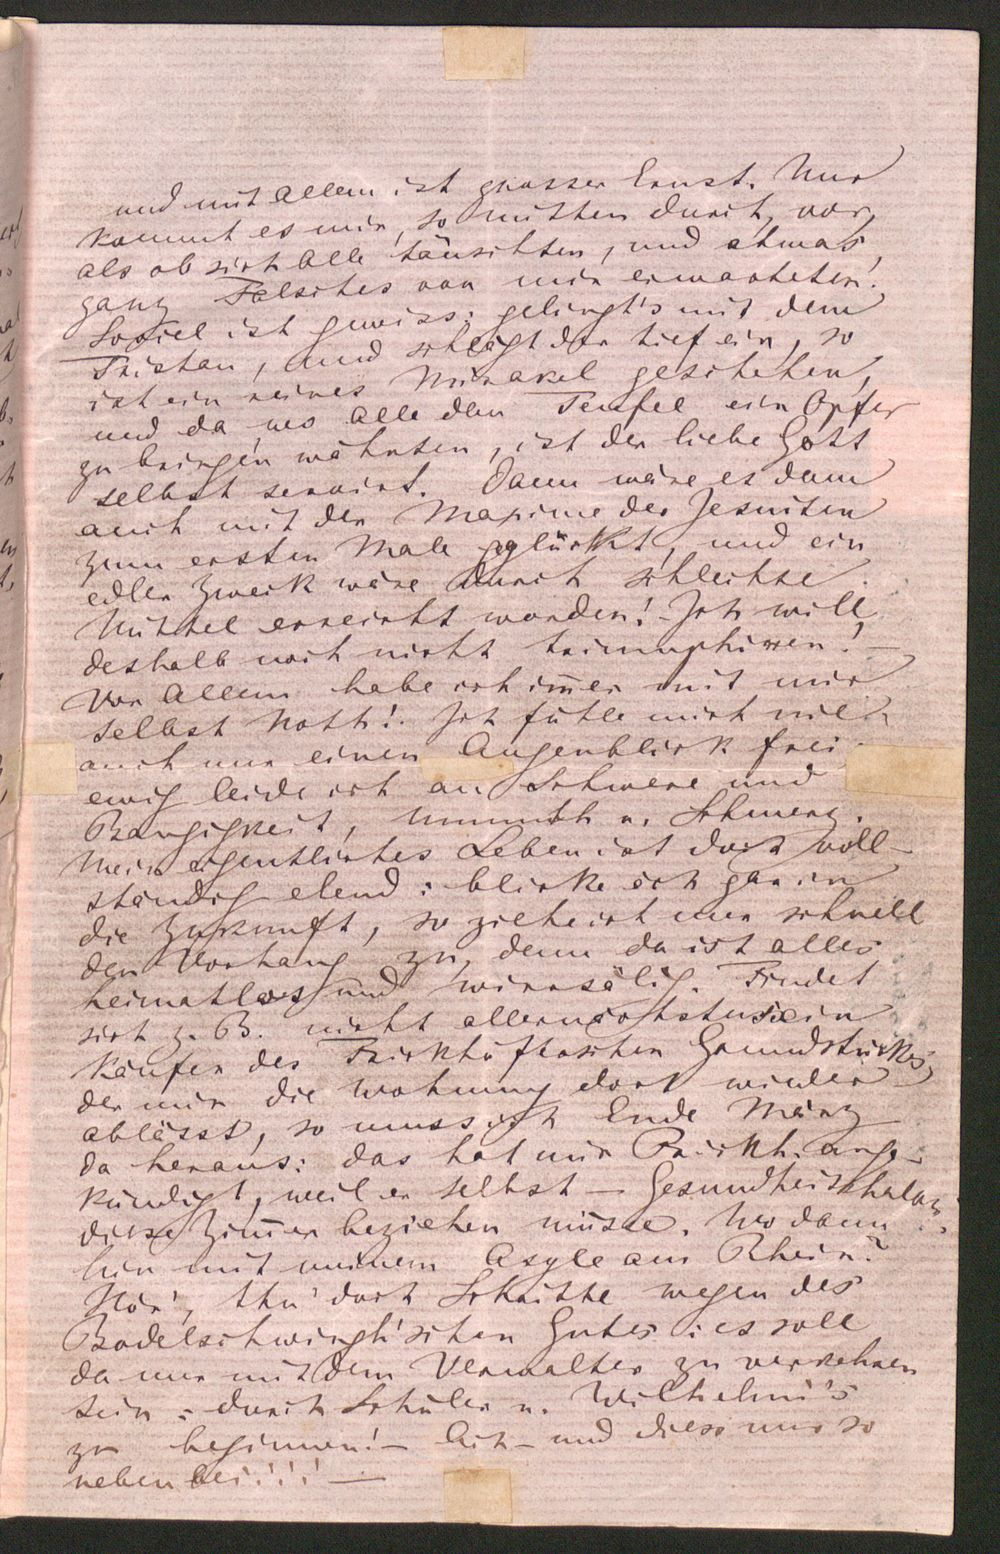 und mit Allem ist grosser Ernst. Nur
kommt es mir, so mitten durch, vor,
als ob sich Alle täuschten, und etwas
ganz Falsches von mir erwarteten!
Soviel ist gewiss: gelingt's mit dem
Tristan, und schlägt der tief ein, so
ist ein reines Mirakel geschehen,
und da, wo Alle dem Teufel ein Opfer
zu bringen wähnten, ist der liebe Gott
selbst servirt. Dann wäre es denn
auch mit der Maxime der Jesuiten
zum ersten Male geglückt, und ein
edler Zweck wäre durch schlechte
Mittel erreicht worden! Ich will
deshalb noch nicht triumphiren! —
Vor Allem habe ich im̄er mit mir
selbst Noth! Ich fühle mich nie
auch nur einen Augenblick frei:
ewig leide ich an Schwere und
Bangigkeit, Unmuth u. Schmerz.
Mein eigentliches Leben ist doch voll-
ständig elend: blicke ich gar in
die Zukunft, so ziehe ich nur schnell
den Vorhang zu, denn da ist alles
heimathlos und wirrsälig. Findet
sich z. B. nicht allernächstens ein
Käufer des Frickhöfferschen Grundstückes,
der mir die Wohnung dort wieder
ablässt, so muss ich Ende März
da heraus: das hat mir Frickh. ange-
kündigt, weil er selbst — Gesundheitshalber
diese Zim̄er beziehen müsse. Wo dann
hin mit meinem Asyle am Rhein?
Hör', thu' doch Schritte wegen des
Bodelschwingh'schen Gutes: es soll
da nur mit dem Verwalter zu verkehren
sein: durch Schüler u. Wilhelmi's
zu beginnen! — Ach — und diess nur so
nebenbei!!! —